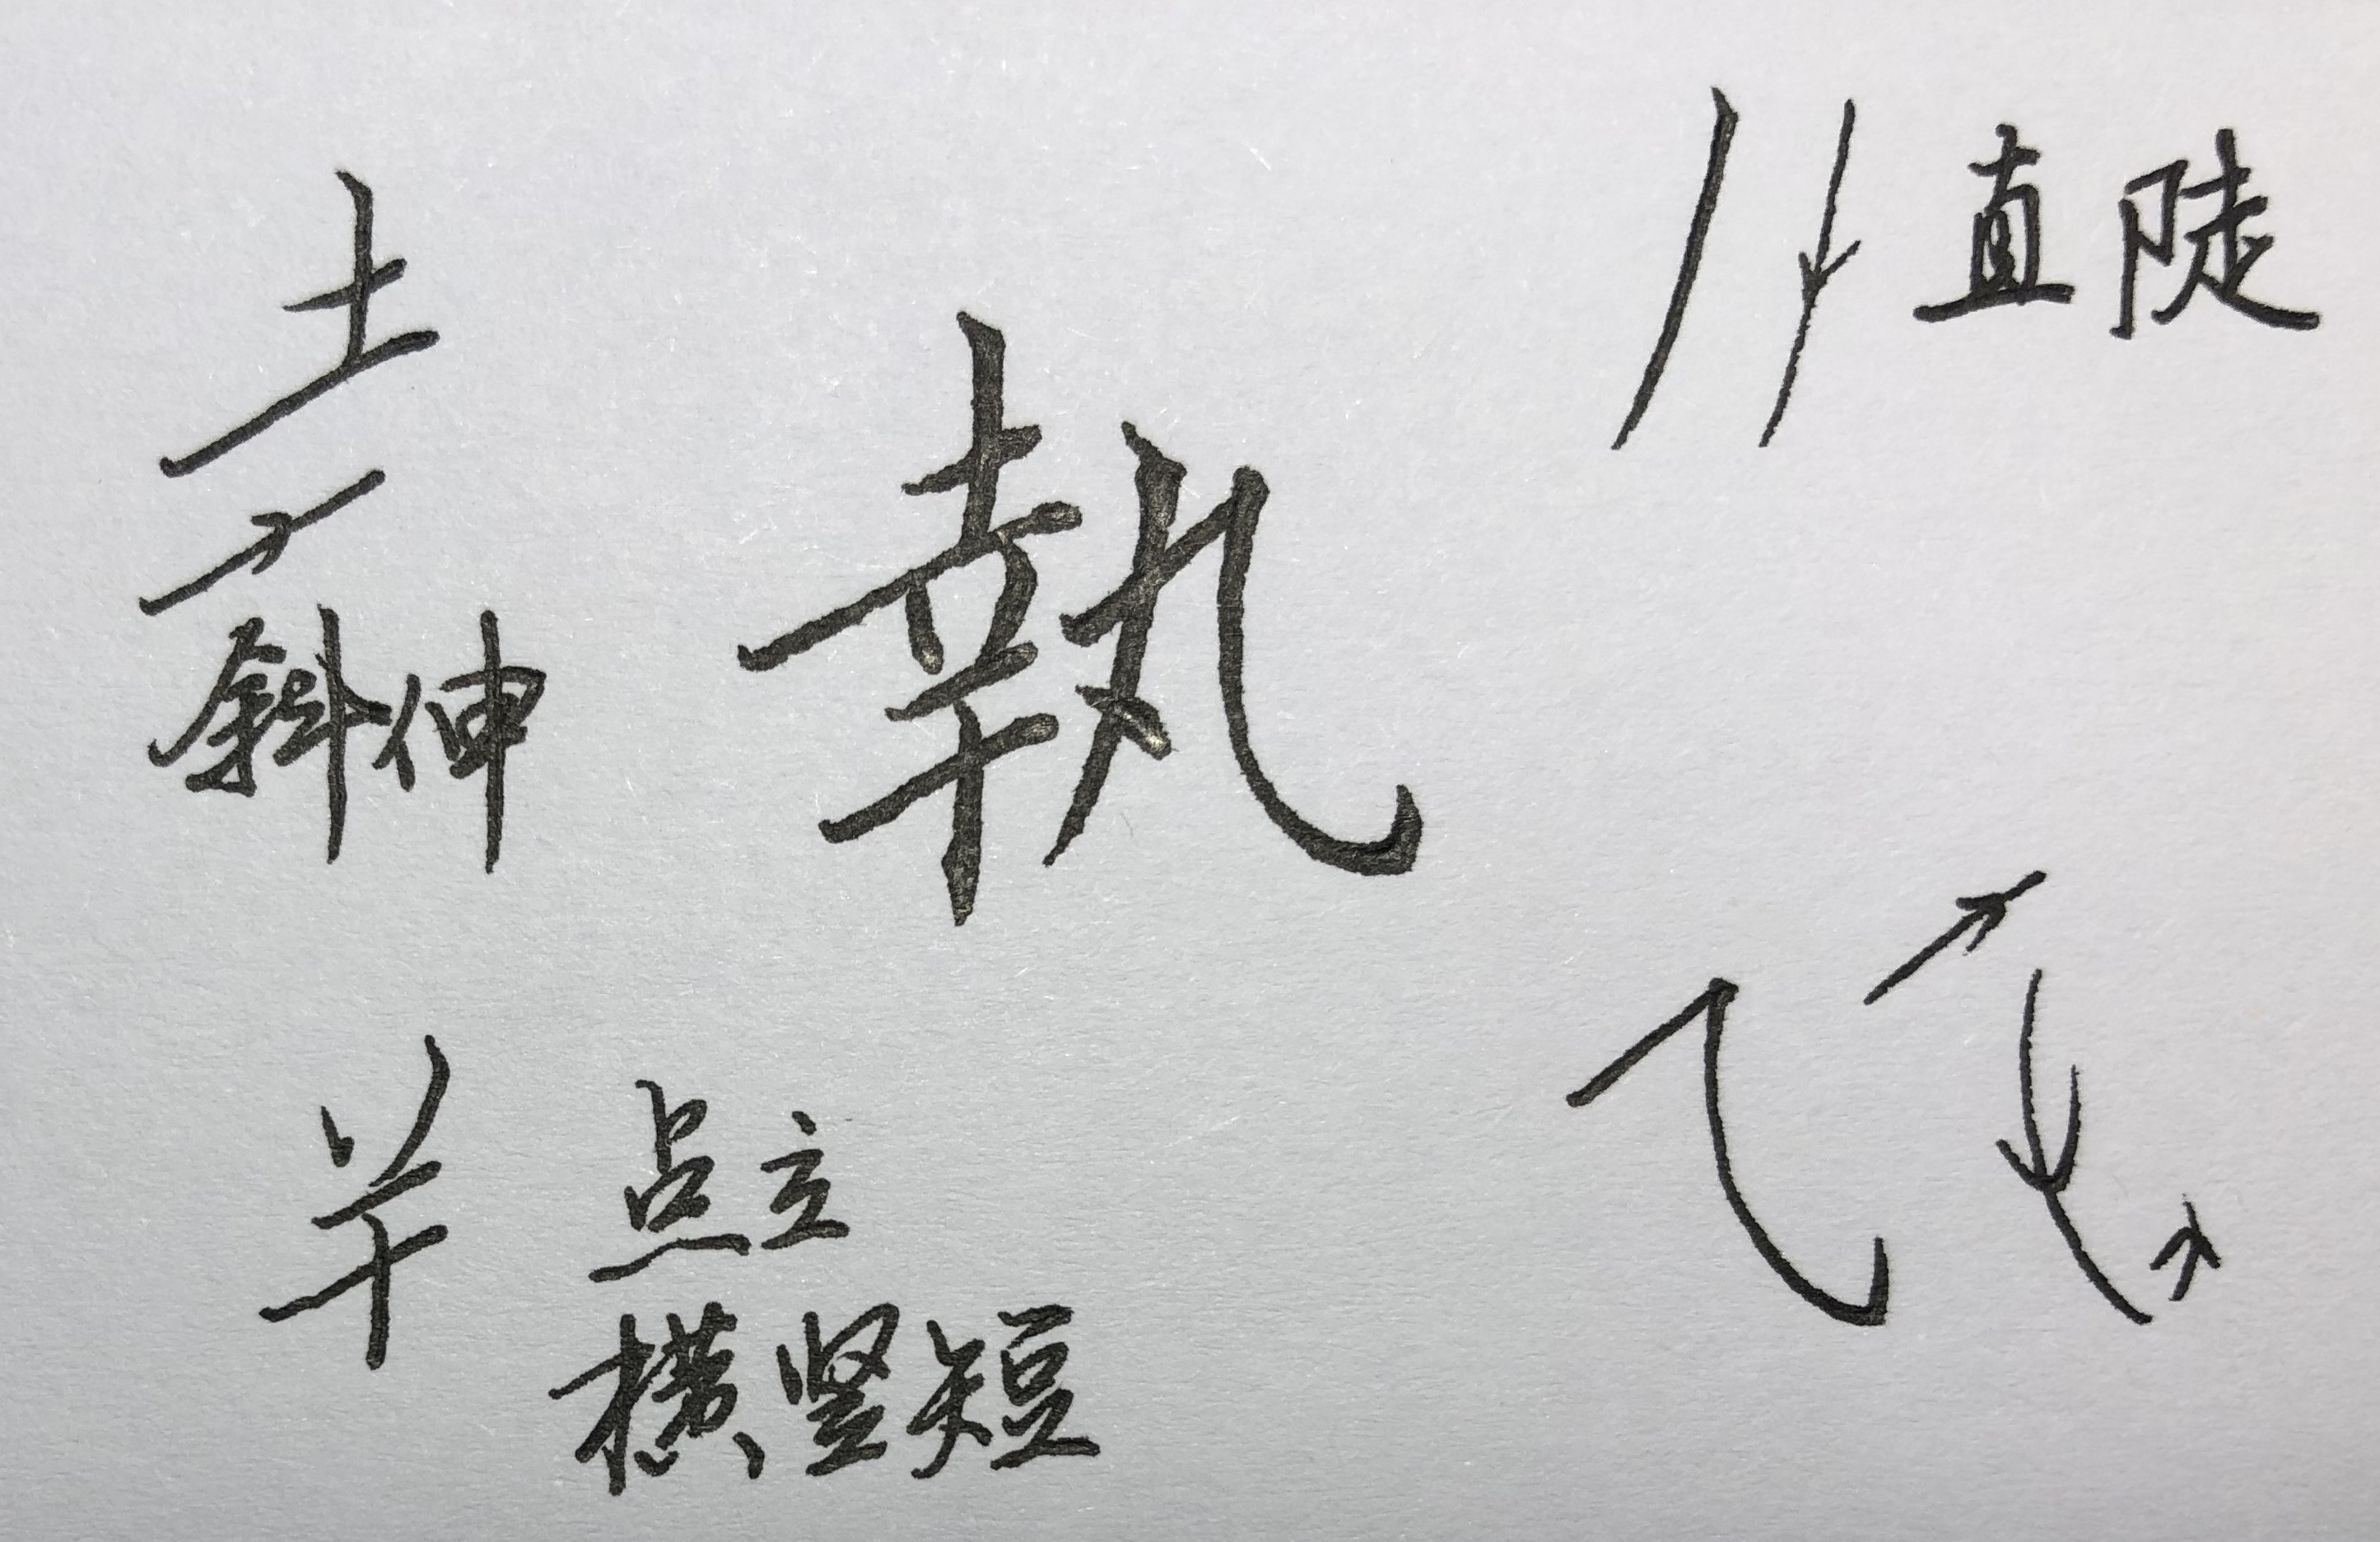 土
斜伸
執
直陡
点立
横竖短